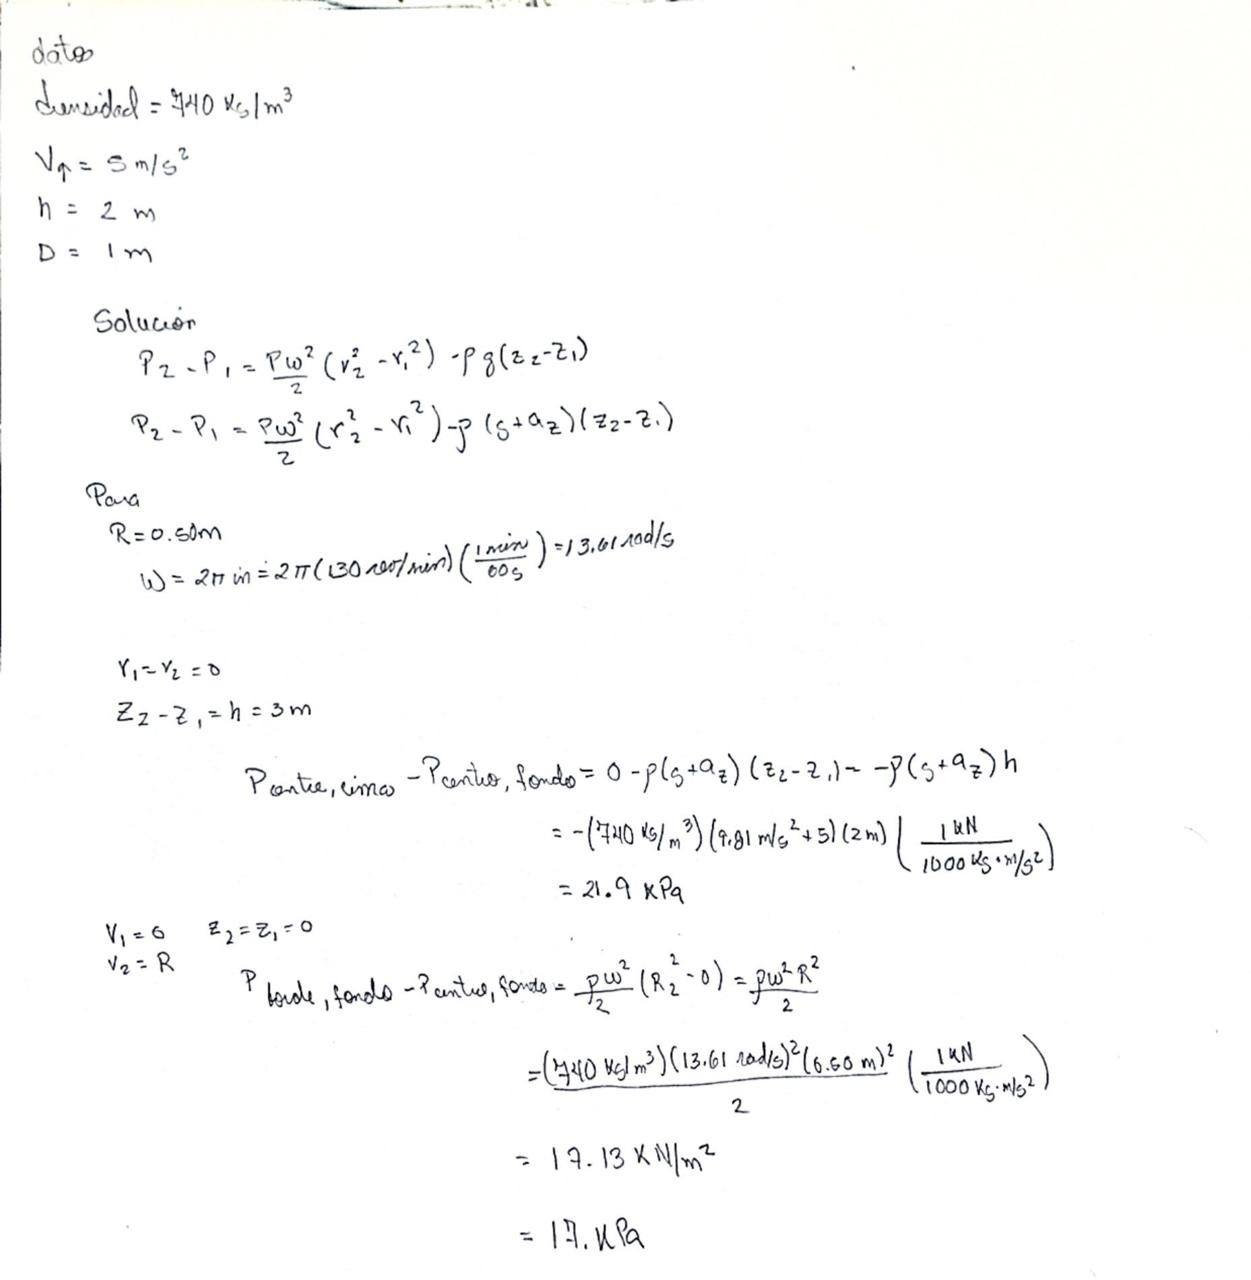 datos
densidad = 740 Kg/m³
V↑ = 5 m/s²
h = 2 m
D = 1 m
Solución
P₂ - P₁ = ρω²/2 (r₂² - r₁²) - ρg(z₂-z₁)
P₂ - P₁ = ρω²/2 (r₂² - r₁²) - ρ (g+a_z)(z₂-z₁)
Para
R = 0.50m
W = 2π ṅ = 2π (130 rev/min) (1 min/60s) = 13.61 rad/s
r₁ = r₂ = 0
Z₂ - Z₁ = h = 3m
P centro, cima - P centro, fondo = 0 - ρ(g+a_z) (z₂-z₁) = -ρ(g+a_z) h
= -(740 Kg/m³) (9.81 m/s² + 5) (2m) (1 kN/1000 Kg·m/s²)
= 21.9 KPa
r₁ = 0 z₂ = z₁ = 0
r₂ = R
P borde, fondo - P centro, fondo = ρω²/2 (R₂² - 0) = ρω²R²/2
= (740 Kg/m³)(13.61 rad/s)²(0.50 m)²/2 (1 kN/1000 Kg·m/s²)
= 17.13 KN/m²
= 17. KPa